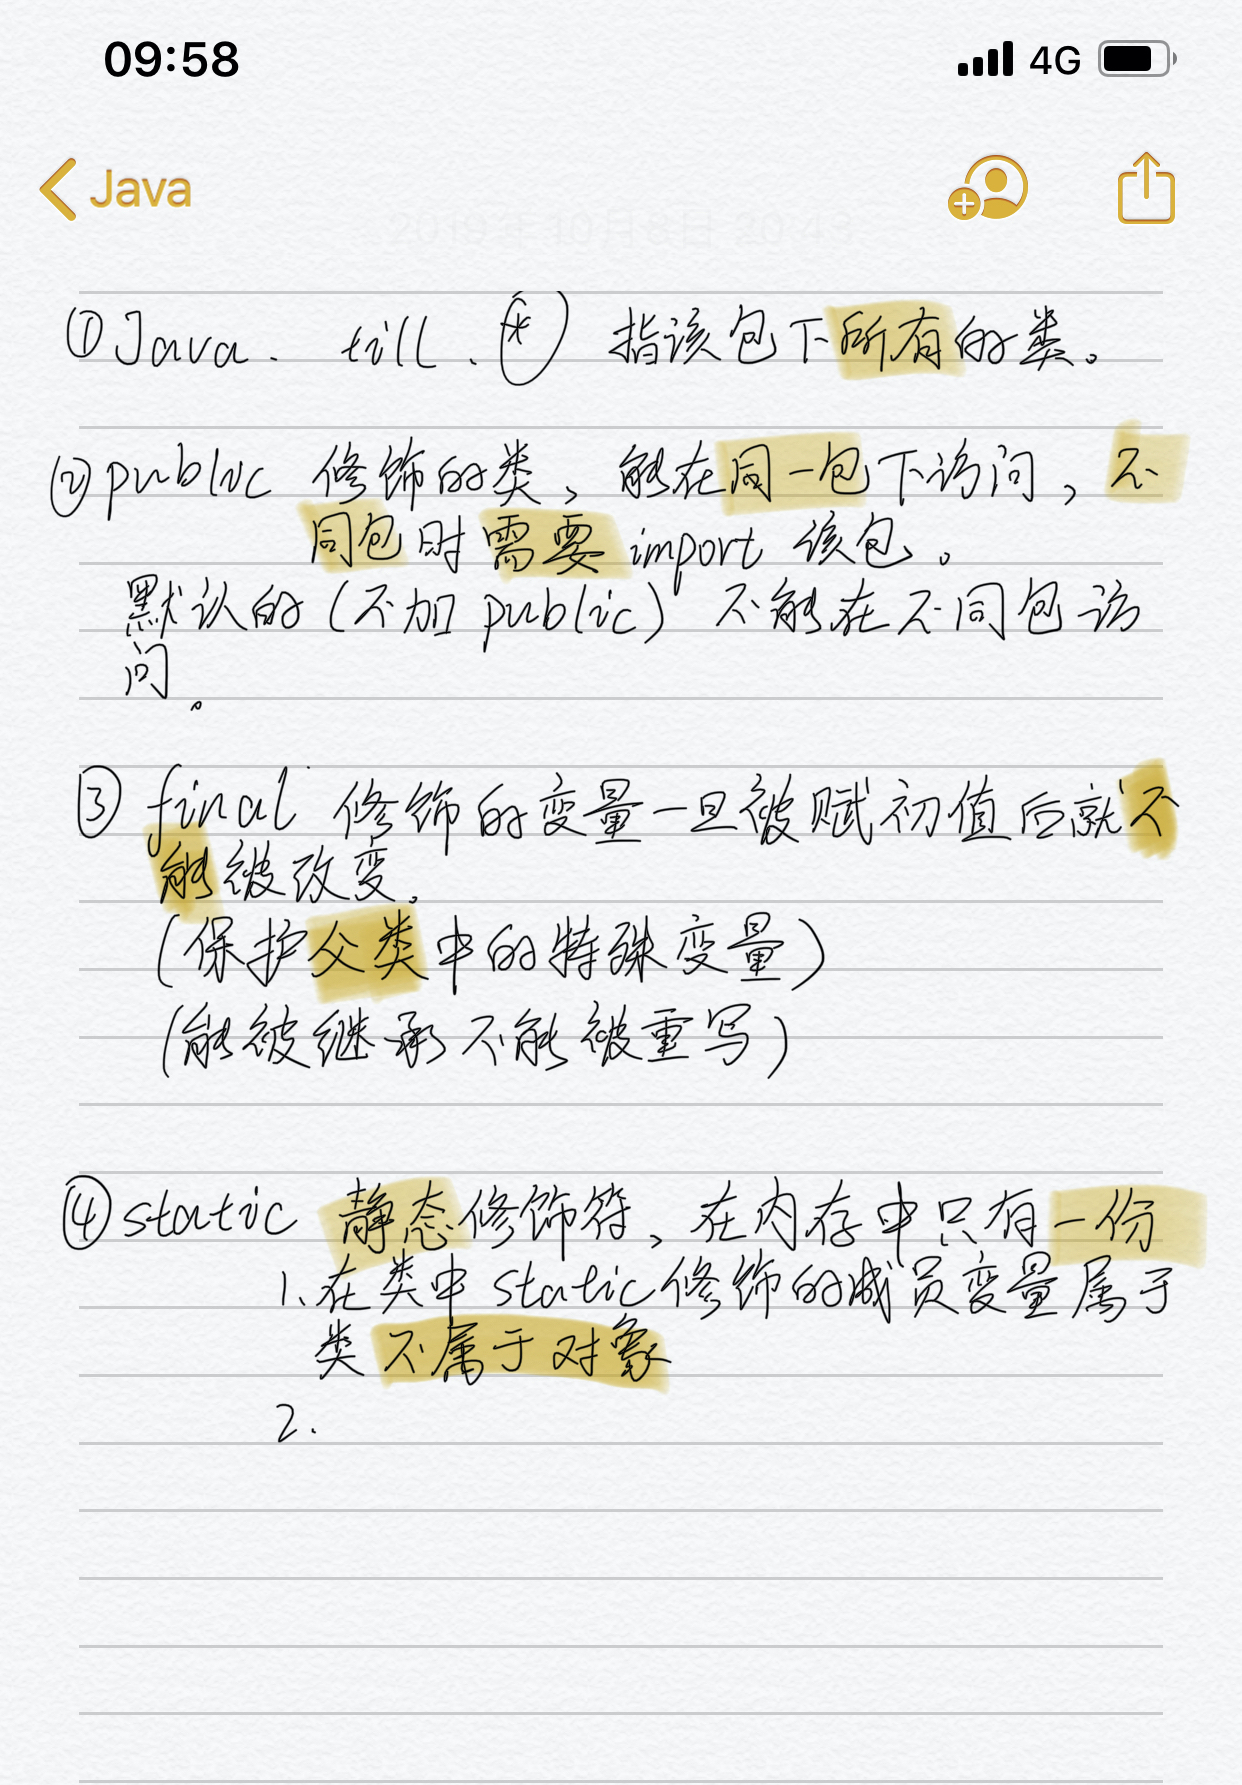 09:58 4G
Java
2019年10月8日 20:43
①Java. till.(*) 指该包下所有的类。
②public 修饰的类，能在同一包下访问，不
同包时需要import 该包。
默认的(不加public) 不能在不同包访
问。
③ final 修饰的变量一旦被赋初值后就不
能被改变.
(保护父类中的特殊变量)
(能被继承不能被重写)
④static 静态修饰符、在内存中只有一份
1.在类中static修饰的成员变量属于
类不属于对象
2.